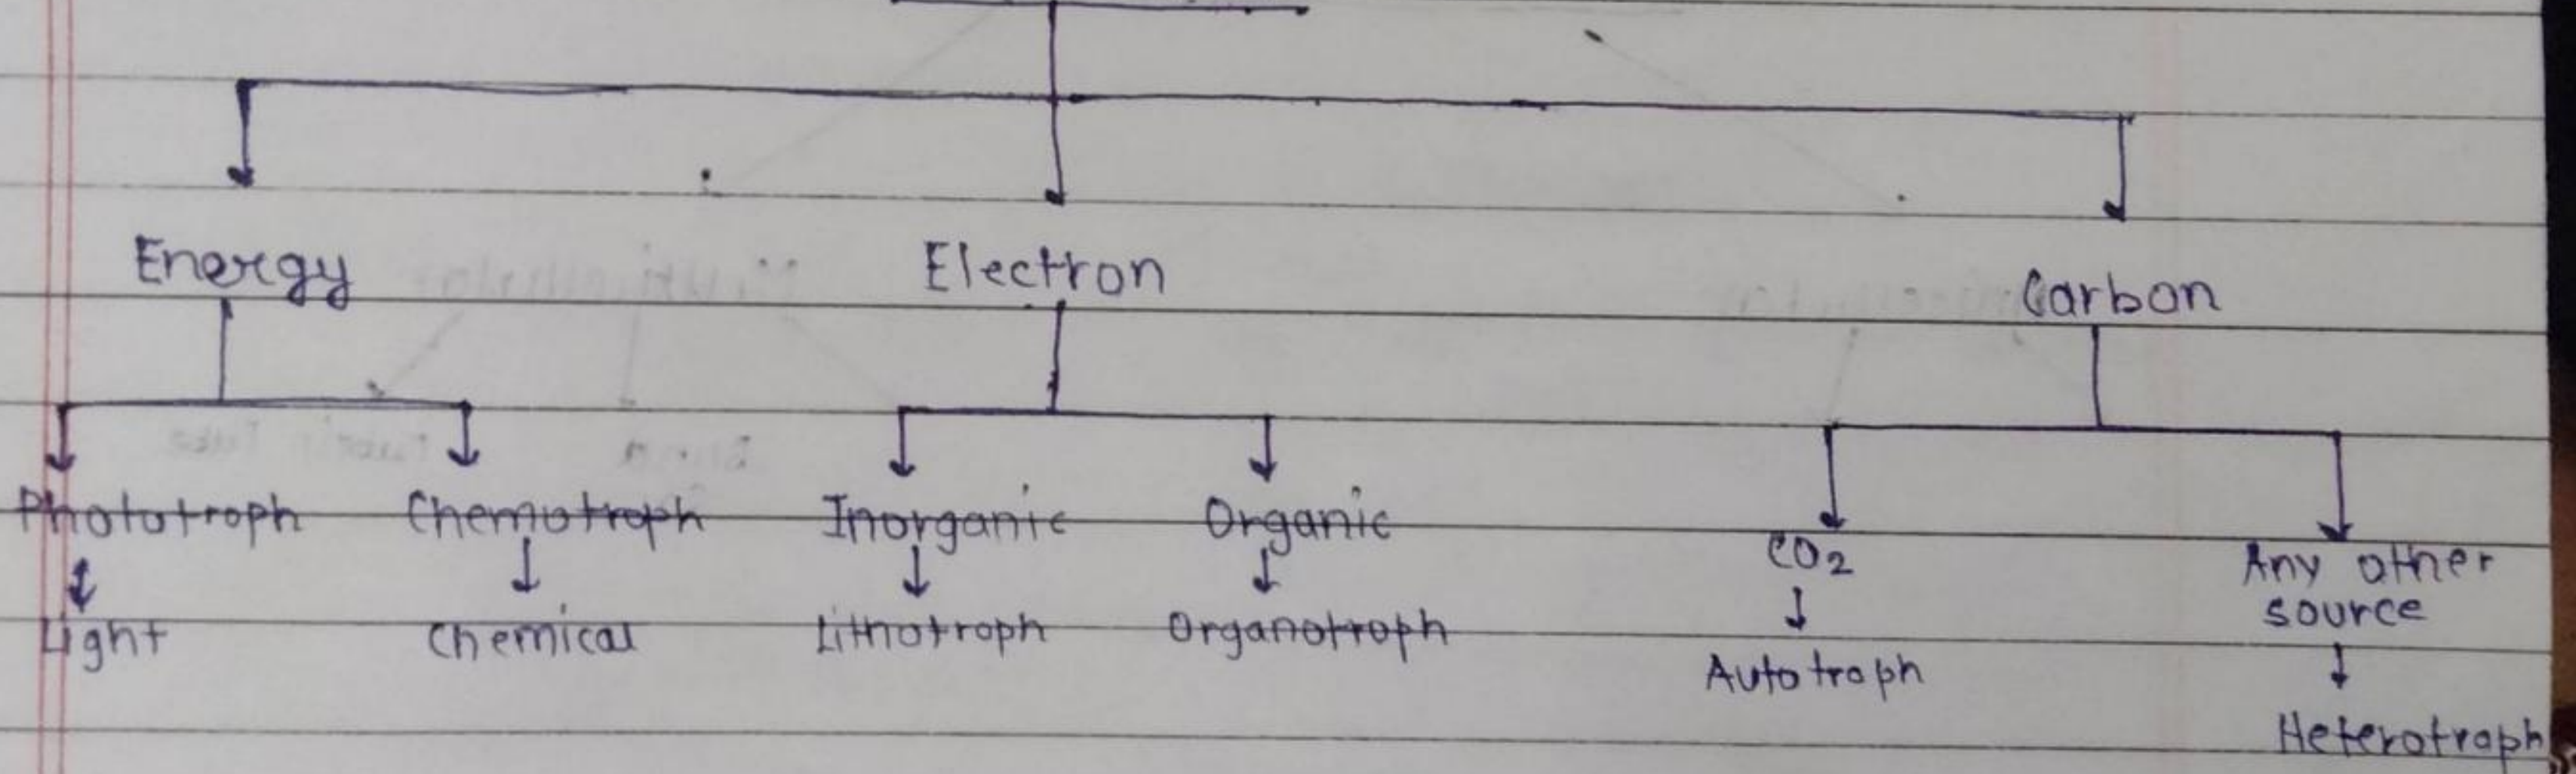 Energy Electron Carbon
Phototroph Chemotroph Inorganic Organic
CO2 Any other
source
Light Chemical Lithotroph Organotroph
Autotroph
Heterotroph